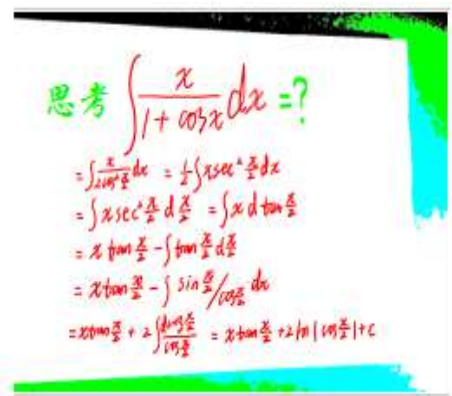 思考 ∫ x/(1+cosx) dx =?
= ∫ x/(2cos²x/2) dx = 1/2 ∫ x sec² x/2 dx
= ∫ x sec² x/2 d x/2 = ∫ x d tan x/2
= x tan x/2 - ∫ tan x/2 d x/2
= x tan x/2 - ∫ sin x/2 / cos x/2 dx
= x tan x/2 + 2 ∫ d cos x/2 / cos x/2 = x tan x/2 + 2 ln | cos x/2 | + c